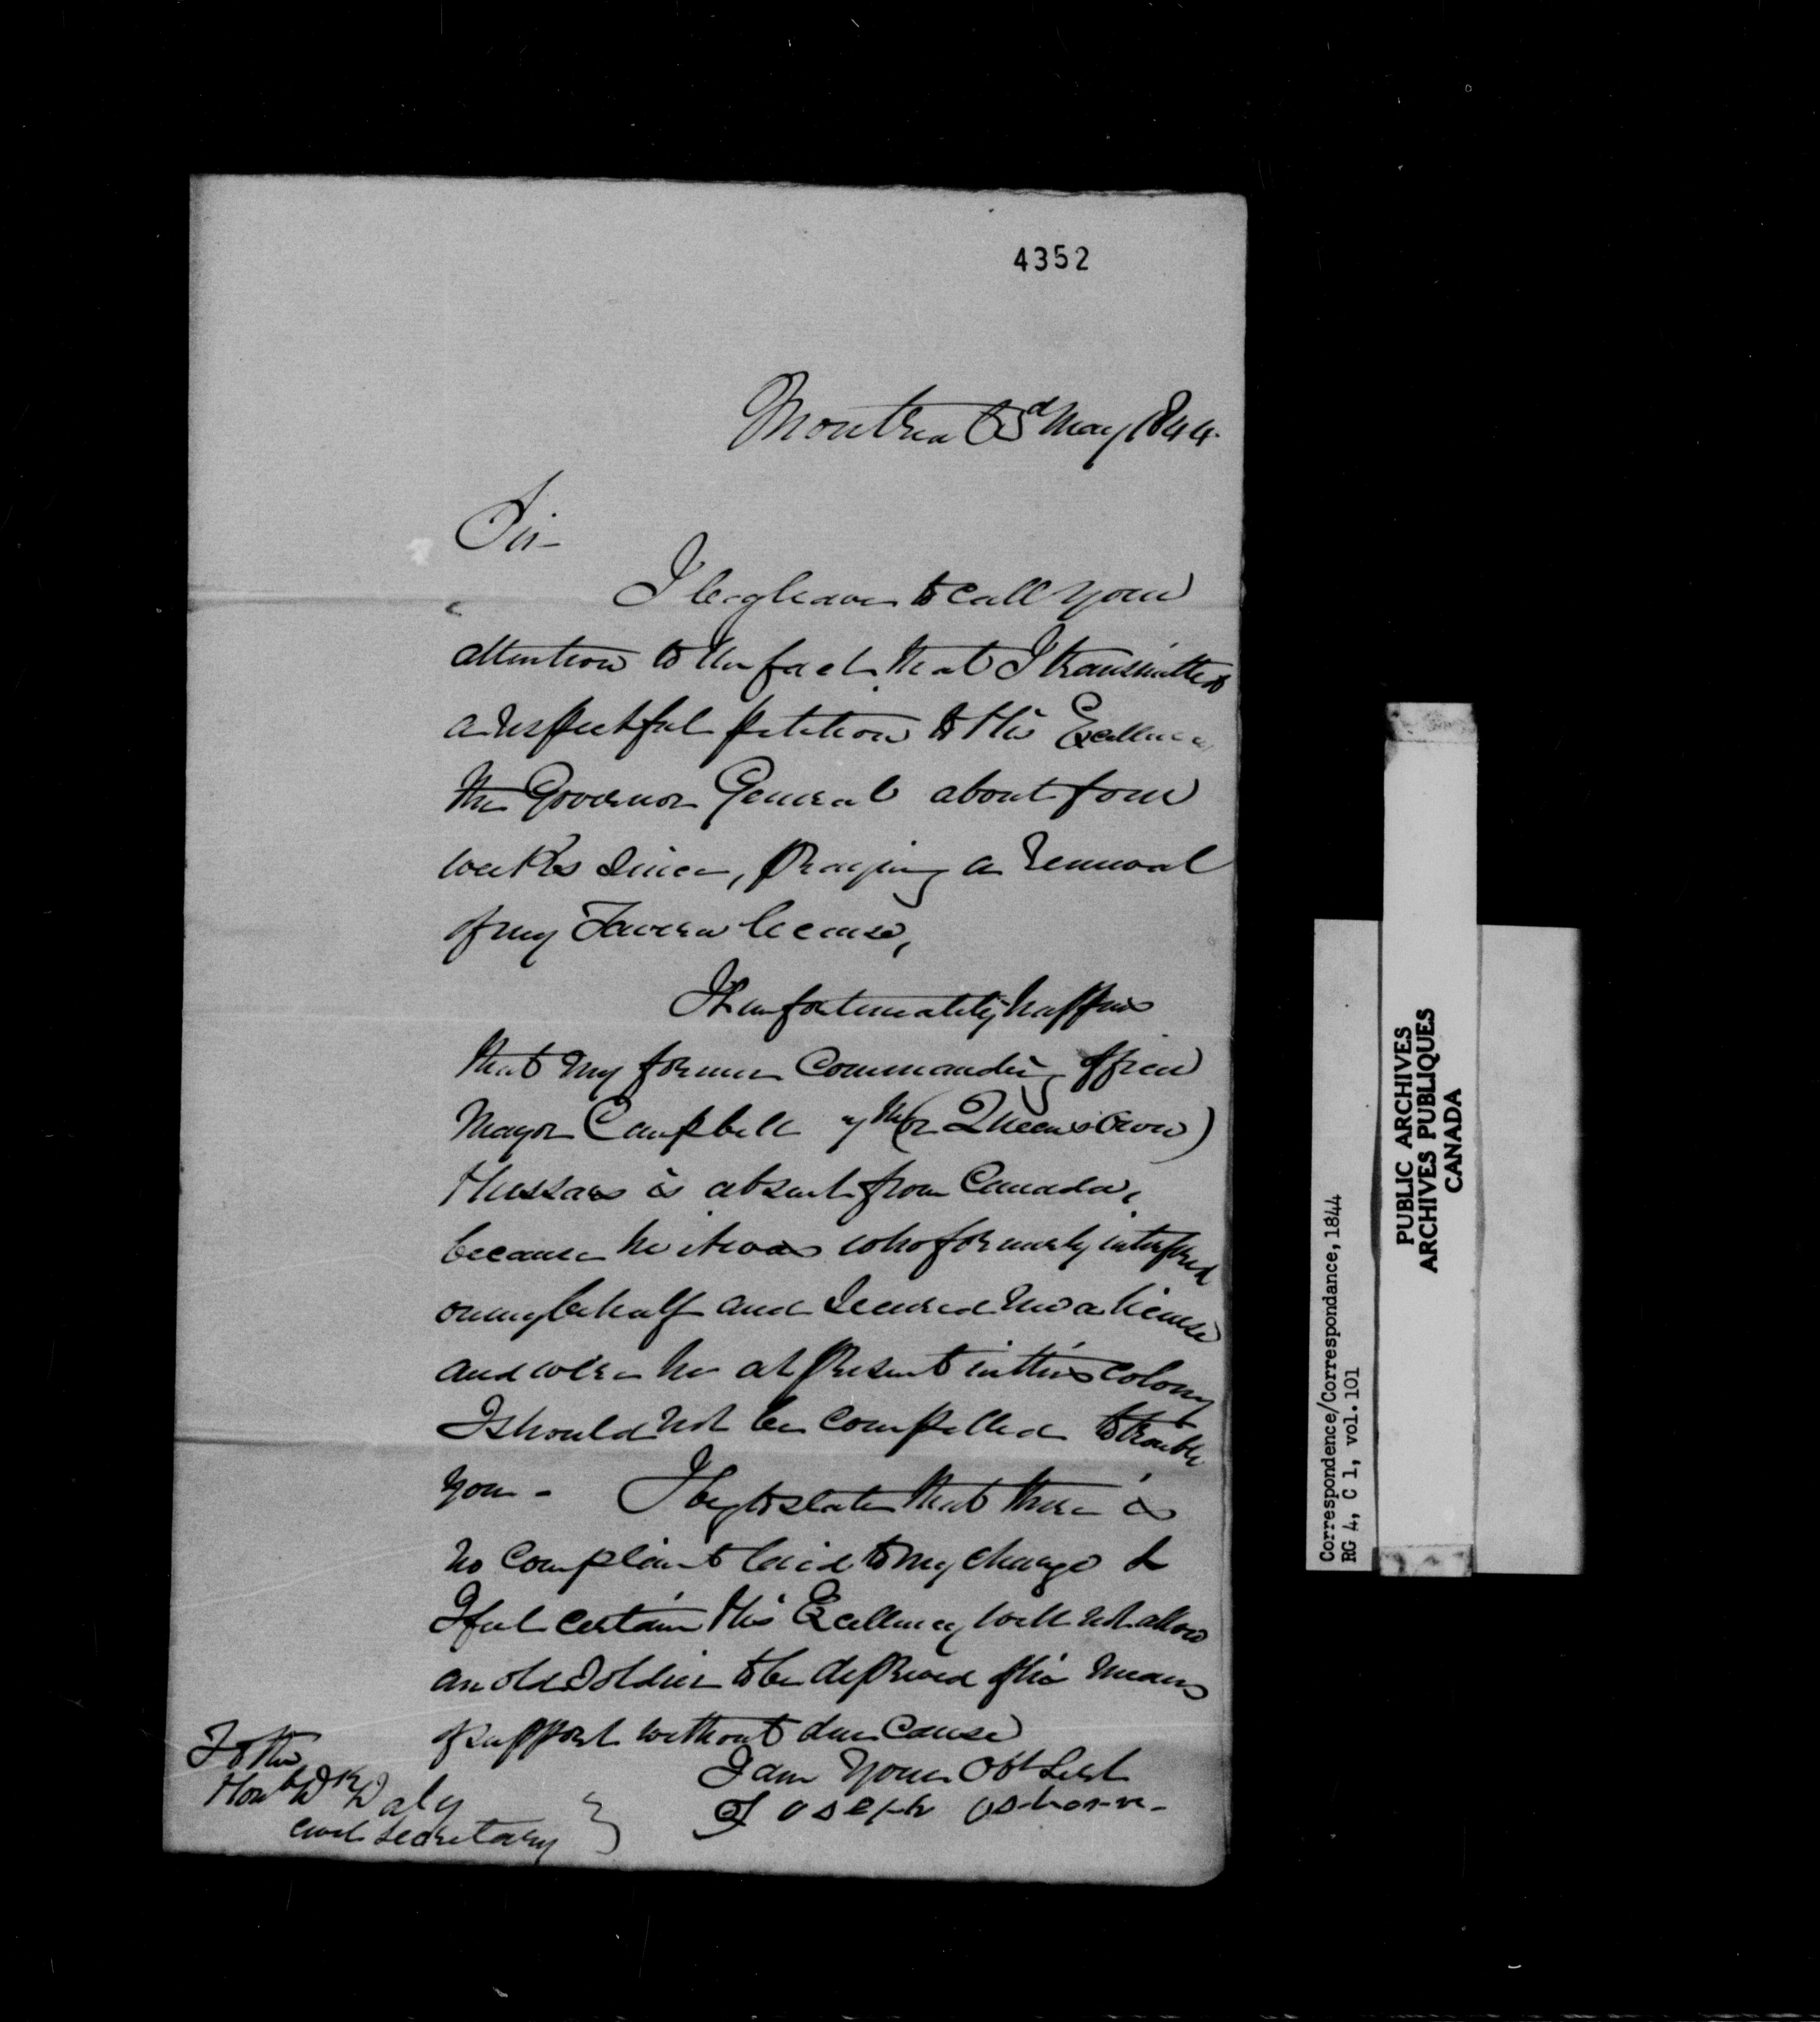 4352
Montreal 3d May 1844.
Sir-
I beg leave to call your
attention to the fact that I transmitted
a respectful petition to His Excellency
the Governor General about four
weeks since, praying a renewal
of my Tavern license,
It unfortunately happens
that my former Commanding officer
Mayor Campbell of the (Queens own)
Hussars is absent from Canada,
because he it was who formerly interfered
on my behalf and secured me a license
and were he at present in this colony
I should not be compelled to trouble
you - I beg to state that there is
no complaint laid to my charge &
I feel certain His Excellency will not allow
an old soldier to be deprived of his means
of support without due cause
I am Your Obt Servt
Joseph Osborne-
To the
Honb D Daly
Civil Secretary
PUBLIC ARCHIVES
ARCHIVES PUBLIQUES
CANADA
Correspondence/Correspondance, 1844
RG 4, C 1, vol. 101